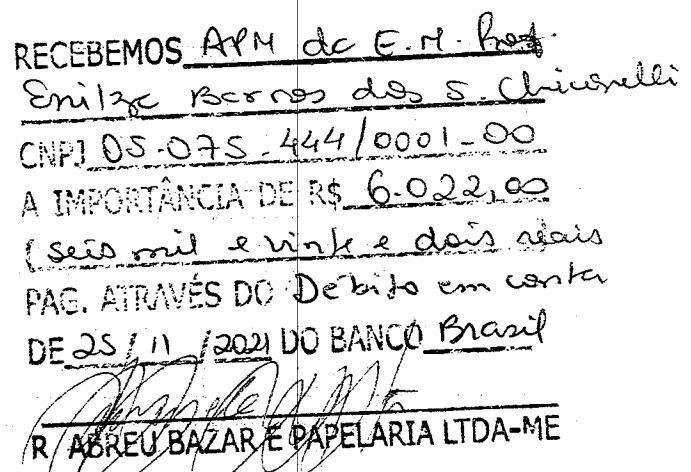 RECEBEMOS APM da E.M. Prof.
Enilze Barros dos S. Chiconelli
CNPJ 05.075.444/0001-00
A IMPORTÂNCIA DE R$ 6.022,00
(seis mil e vinte e dois reais
PAG. ATRAVÉS DO Débito em conta
DE 25/11/2021 DO BANCO Brasil
R ABREU BAZAR E PAPELARIA LTDA-ME